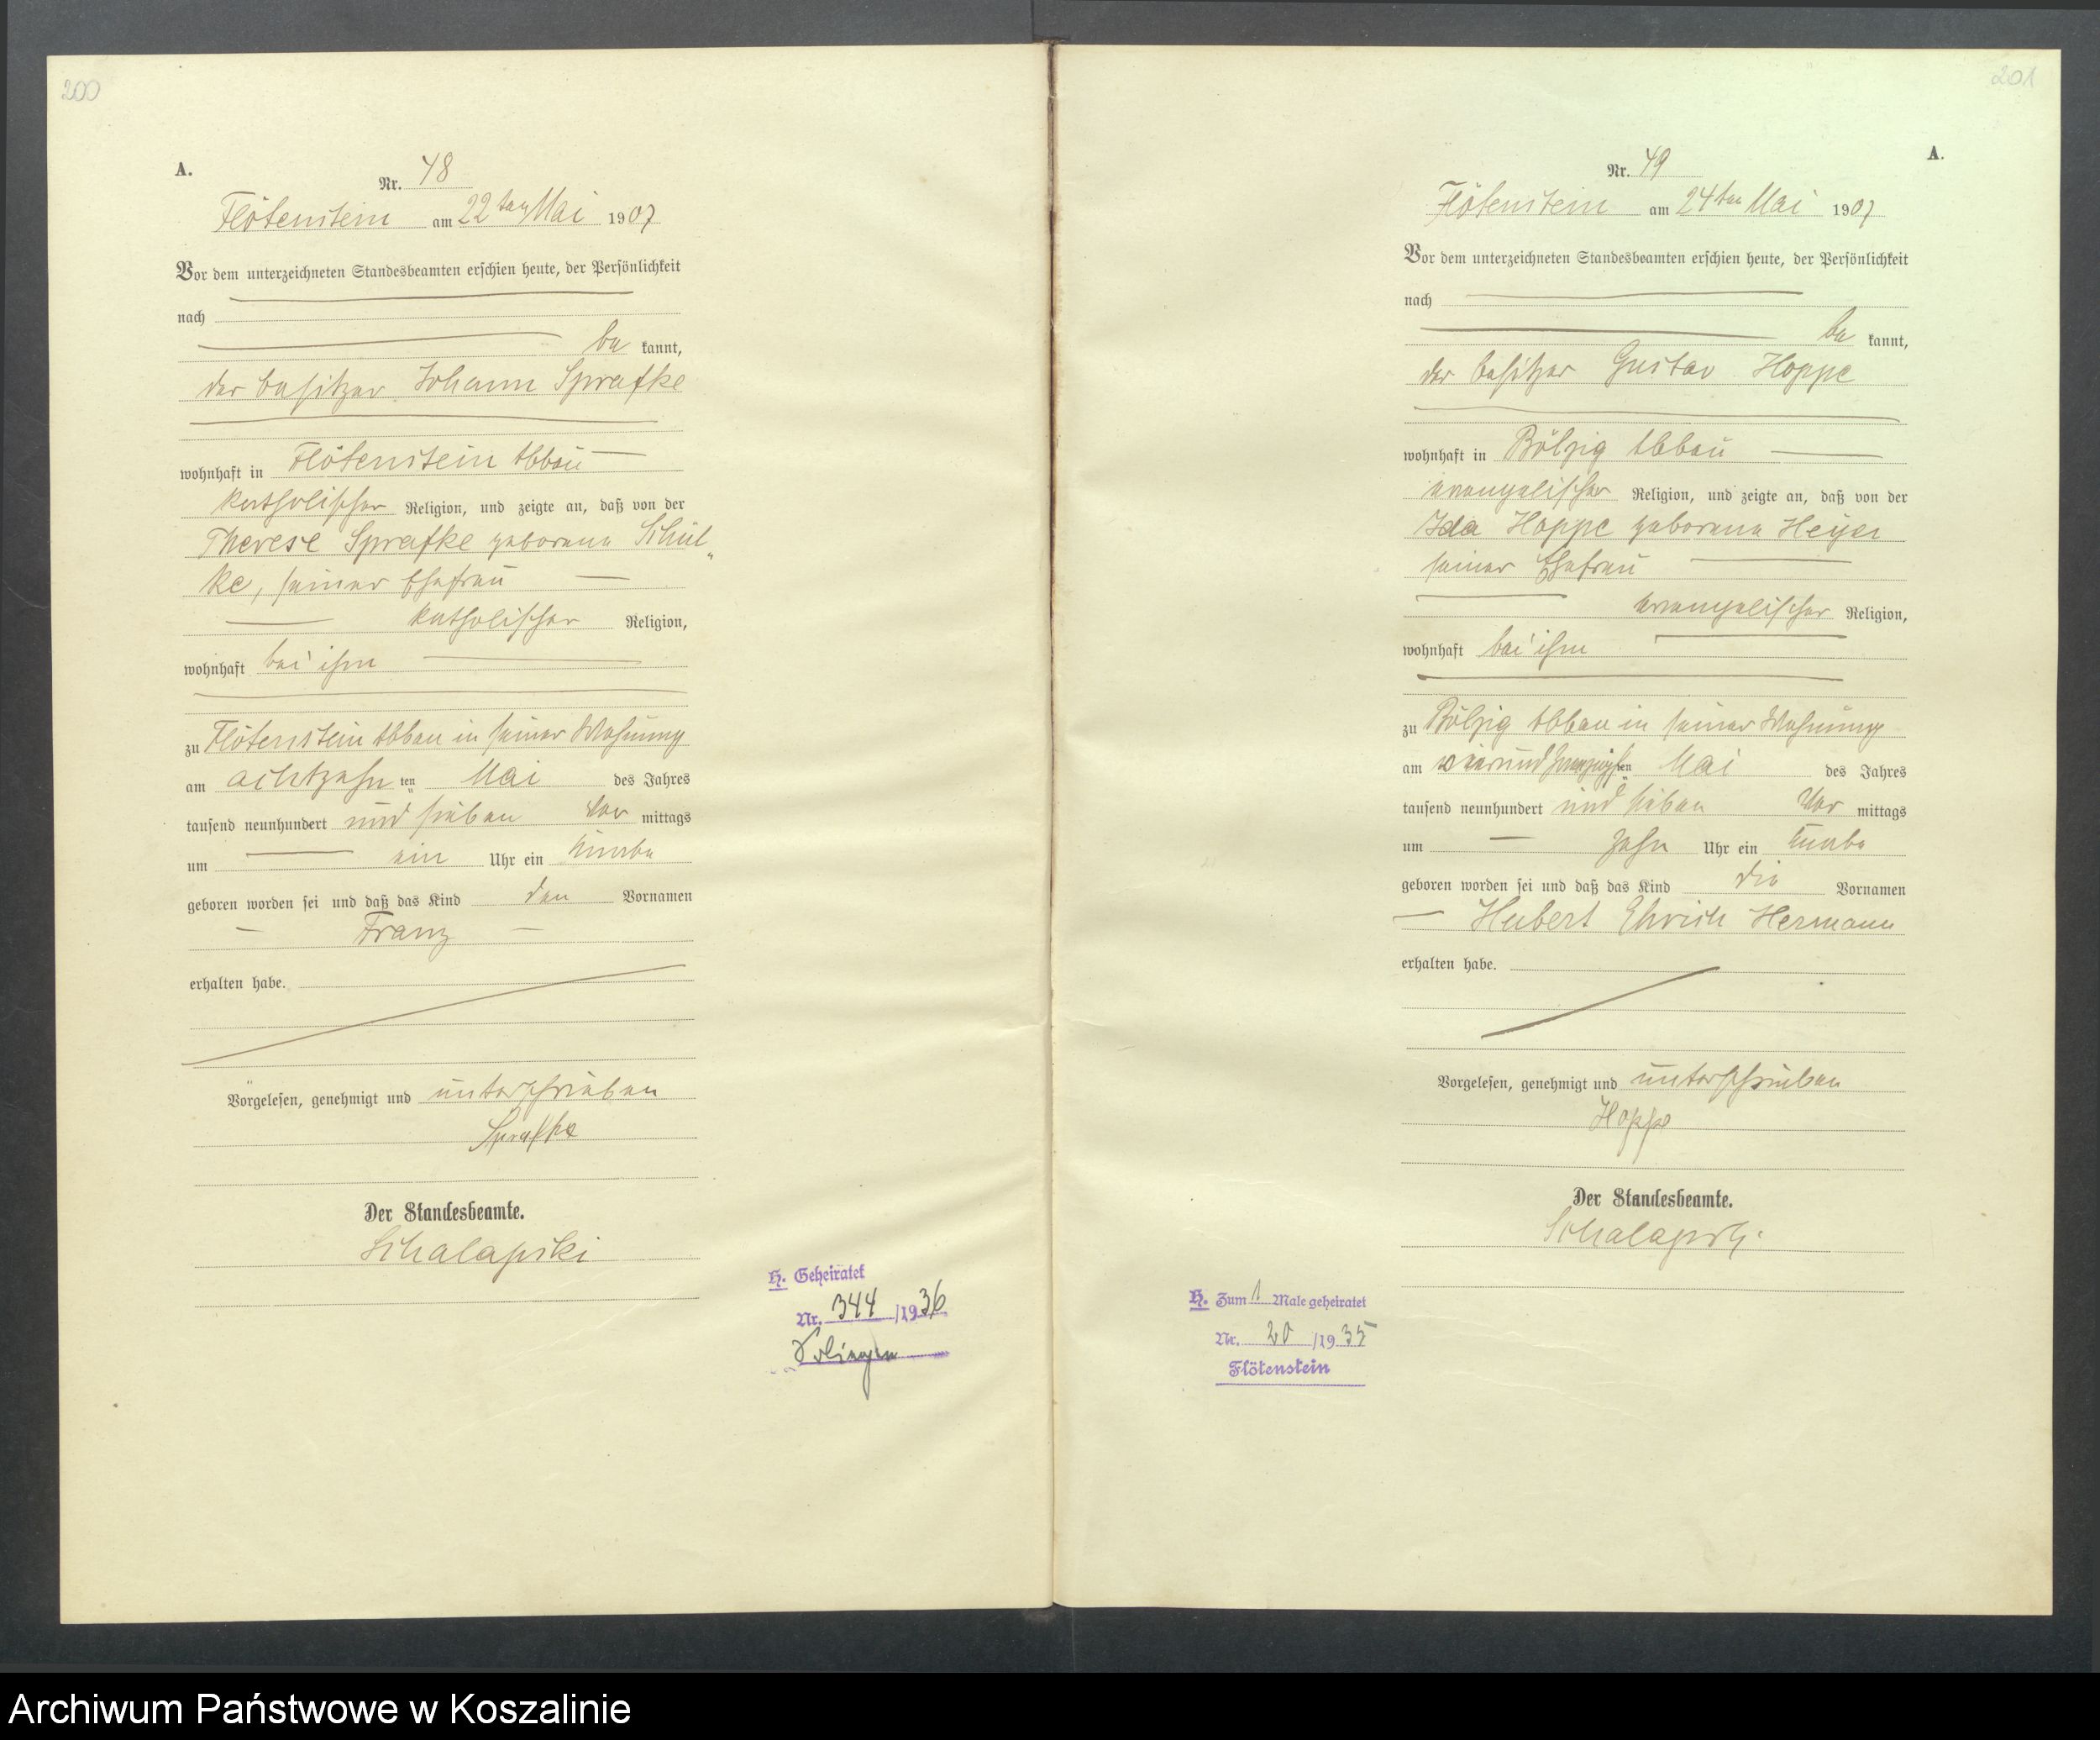 200
A.
Nr. 48
Flötenstein am 22ten Mai 1907
Vor dem unterzeichneten Standesbeamten erschien heute, der Persönlichkeit
nach
be kannt,
der Besitzer Johann Sprafke
wohnhaft in Flötenstein Abbau
katholischer Religion, und zeigte an, daß von der
Therese Sprafke geborene Schül-
ke, seiner Ehefrau
katholischer Religion,
wohnhaft bei ihm
zu Flötenstein Abbau in seiner Wohnung
am achtzehn ten Mai des Jahres
tausend neunhundert und sieben Vor mittags
um ein Uhr ein Knabe
geboren worden sei und daß das Kind den Vornamen
Franz
erhalten habe.
Vorgelesen, genehmigt und unterschrieben
Sprafke
Der Standesbeamte.
Schalapski
H. Geheiratet
Nr. 344 /1936
Solingen
201
A.
Nr. 49
Flötenstein am 24ten Mai 1907
Vor dem unterzeichneten Standesbeamten erschien heute, der Persönlichkeit
nach
be kannt,
der Besitzer Gustav Hoppe
wohnhaft in Bölzig Abbau
evangelischer Religion, und zeigte an, daß von der
Ida Hoppe geborene Heyer
seiner Ehefrau
evangelischer Religion,
wohnhaft bei ihm
zu Bölzig Abbau in seiner Wohnung
am vierundzwanzigsten Mai des Jahres
tausend neunhundert und sieben Vor mittags
um zehn Uhr ein Knabe
geboren worden sei und daß das Kind die Vornamen
Hubert Ehrich Hermann
erhalten habe.
Vorgelesen, genehmigt und unterschrieben
Hoppe
Der Standesbeamte.
Schalapski
H. Zum 1 Male geheiratet
Nr. 20 /1935
Flötenstein
Archiwum Państwowe w Koszalinie